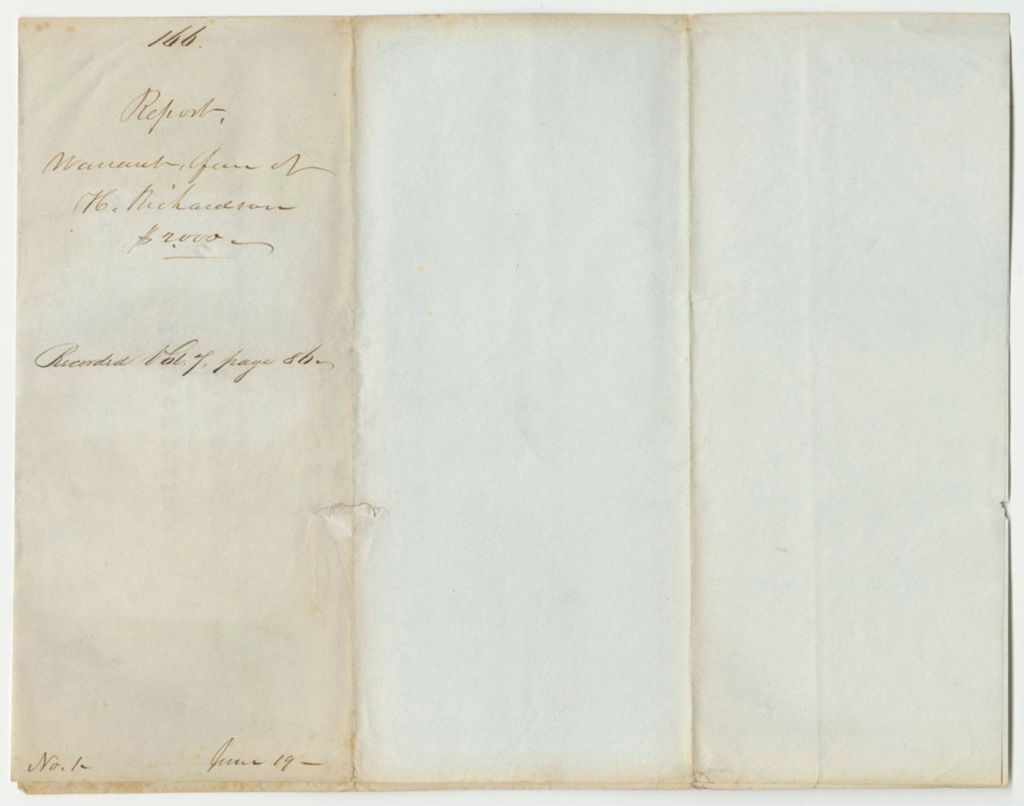 166.
Report.
Warrant, favr of
H. Richardson
$2000
Recorded Vol. 7, page 86
No. 1
June 19